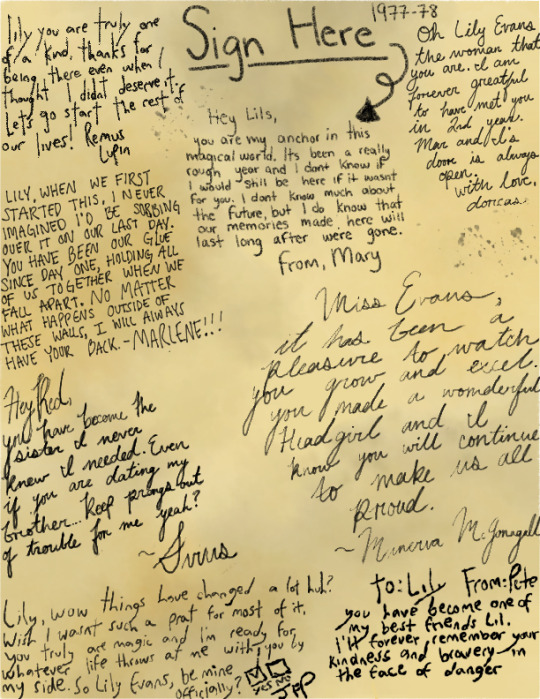 1977-78
Sign Here
Lily you are truly one
of a kind, thanks for
being there even when I
thought I didnt deserve it.
Let's go start the rest of
our lives! Remus
Lupin
Oh Lily Evans
the woman that
you are. I am
forever greatful
to have met you
in 2nd year.
Mar and I's
door is always
open.
with love,
dorcas
Hey Lils,
you are my anchor in this
magical world. Its been a really
rough year and I dont know if
I would still be here if it wasnt
for you. I dont know much about
the future, but I do know that
our memories made here will
last long after were gone.
From, Mary
LILY, WHEN WE FIRST
STARTED THIS, I NEVER
IMAGINED I'D BE SOBBING
OVER IT ON OUR LAST DAY.
YOU HAVE BEEN OUR GLUE
SINCE DAY ONE, HOLDING ALL
OF US TOGETHER WHEN WE
FALL APART. NO MATTER
WHAT HAPPENS OUTSIDE OF
THESE WALLS, I WILL ALWAYS
HAVE YOUR BACK. -MARLENE!!!
Miss Evans,
it has been a
pleasure to watch
you grow and excel.
you made a wonderful
Headgirl and I
know you will continue
to make us all
proud.
~Minerva McGonagall
Hey Red,
you have become the
sister I never
knew I needed. Even
if you are dating my
brother... Keep prongs out
of trouble for me yeah?
~Sirius
Lily, wow things have changed a lot huh?
Wish I wasnt such a prat for most of it.
you truly are magic and I'm ready for
whatever life throws at me with you by
my side. So Lily Evans, be mine
officially?
yes no
JP
To: Lily From: Pete
you have become one of
my best friends Lil.
I'll forever remember your
kindness and bravery in
the face of danger